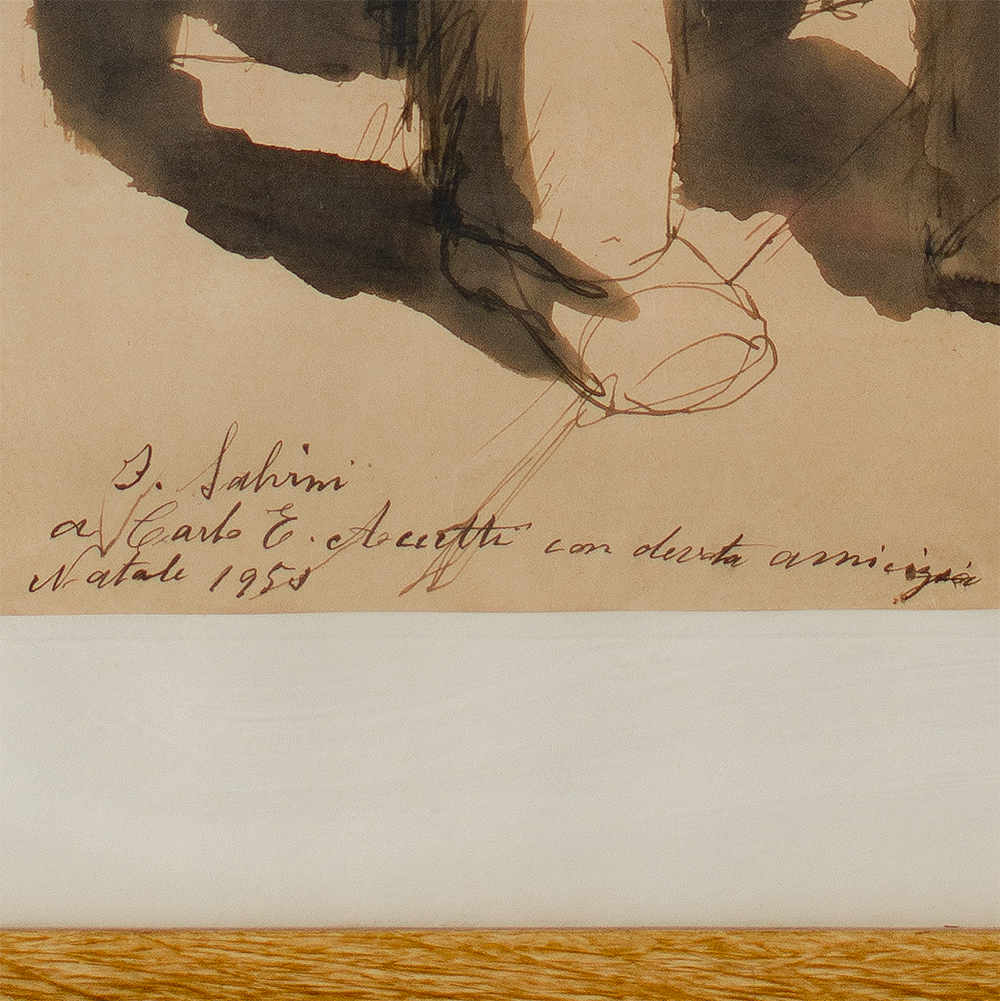 I. Salvini
a Carlo E. Accetti con devota amicizia
Natale 1951